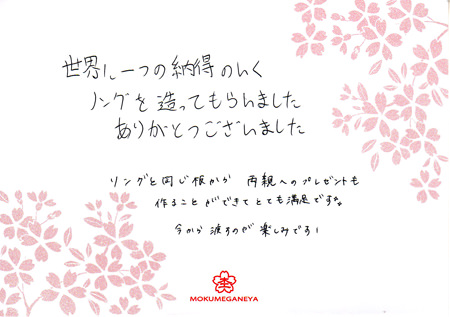 世界に一つの納得のいく
リングを造ってもらいました
ありがとうございました
リングと同じ板から 両親へのプレゼントも
作ることができてとても満足です。
今から渡すのが楽しみです!
MOKUMEGANEYA